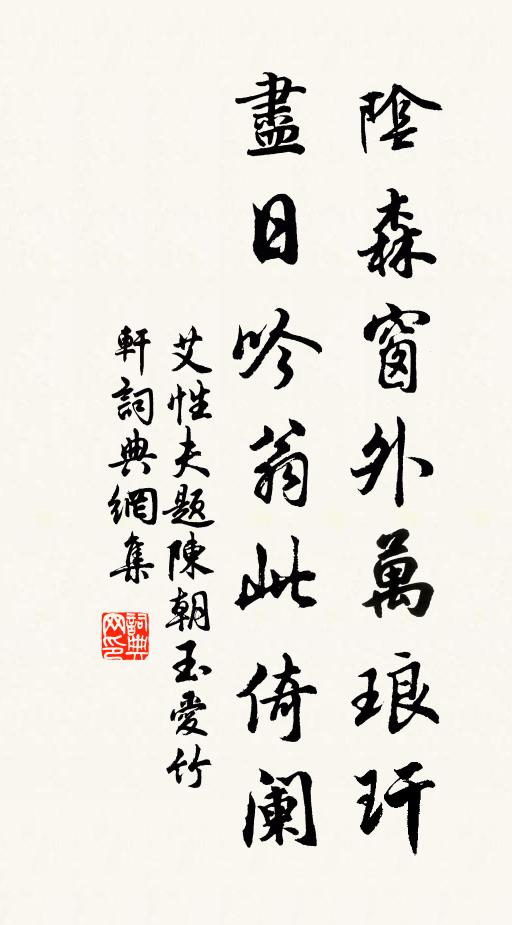 陰森窗外萬琅玕
盡日吟翁此倚闌
艾性夫題陳朝玉愛竹
軒詞典網集
詞典网印